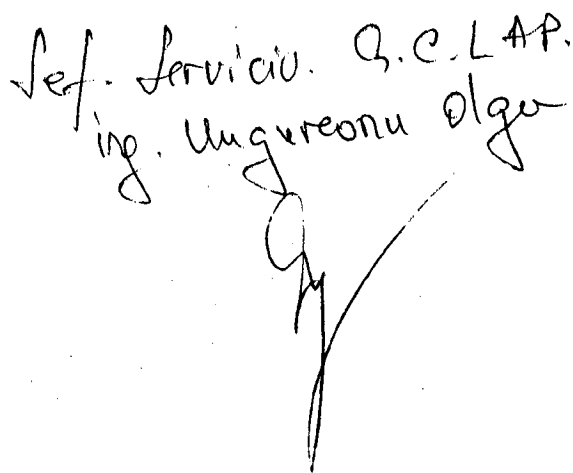 Sef. Serviciu. G.C.L AP.
ing. Ungureanu Olga